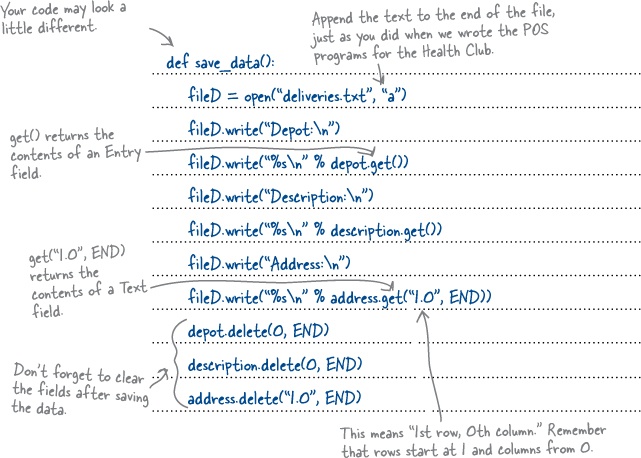 Your code may look a
little different.
Append the text to the end of the file,
just as you did when we wrote the POS
programs for the Health Club.
def save_data():
fileD = open("deliveries.txt", "a")
fileD.write("Depot:\n")
get() returns the
contents of an Entry
field.
fileD.write("%s\n" % depot.get())
fileD.write("Description:\n")
fileD.write("%s\n" % description.get())
fileD.write("Address:\n")
get("1.0", END)
returns the
contents of a Text
field.
fileD.write("%s\n" % address.get("1.0", END))
depot.delete(0, END)
description.delete(0, END)
address.delete("1.0", END)
Don't forget to clear
the fields after saving
the data.
This means "1st row, 0th column." Remember
that rows start at 1 and columns from 0.